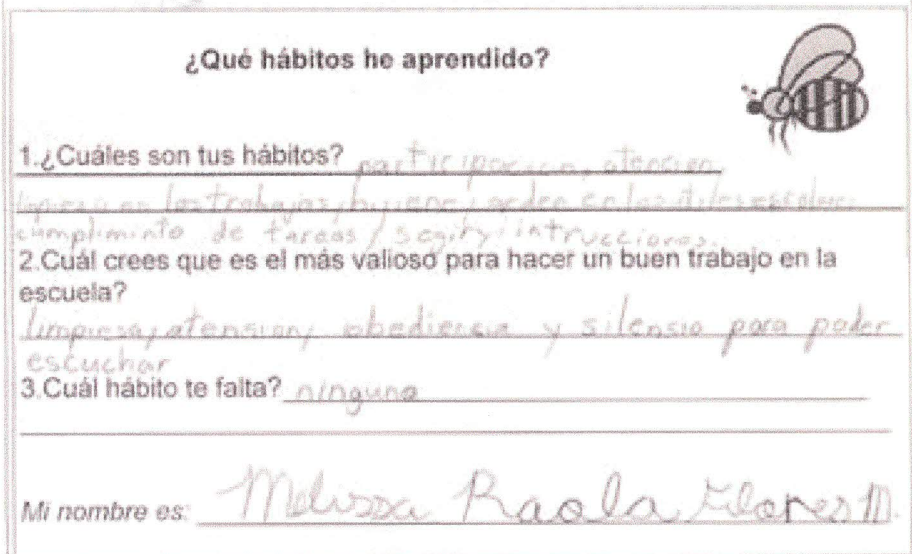 ¿Qué hábitos he aprendido?
1.¿Cuáles son tus hábitos? participacion, atencion,
limpiesa en los trabajos, hijiene, orden en los utiles escolares
cumplimiento de tareas / segity intrucciones.
2.Cuál crees que es el más valioso para hacer un buen trabajo en la
escuela?
limpiesa, atension, obediencia y silensio para poder
escuchar
3.Cuál hábito te falta? ninguno
Mi nombre es: Melissa Paola Flores M.